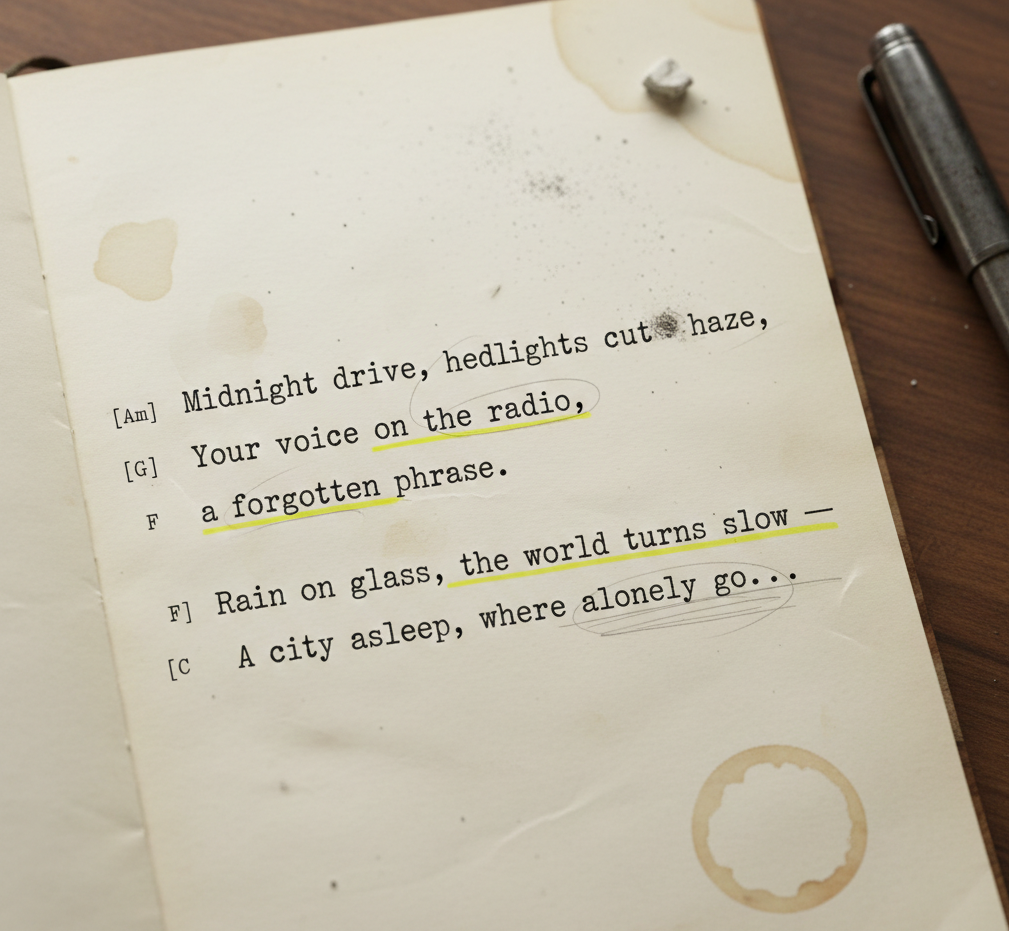 [Am] Midnight drive, hedlights cut haze,
[G] Your voice on the radio,
F a forgotten phrase.
F] Rain on glass, the world turns slow —
[C A city asleep, where alonely go...